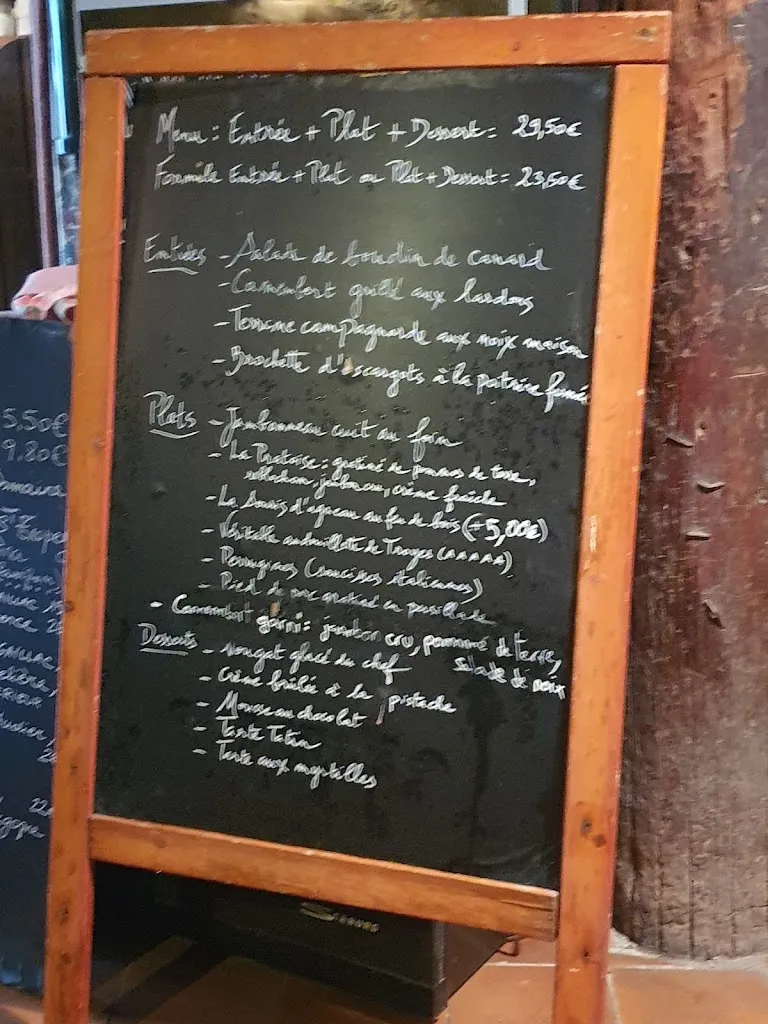 Menu : Entrée + Plat + Dessert = 29,50€
Formule Entrée + Plat ou Plat + Dessert = 23,50€
Entrées - Salade de boudin de canard
- Camembert grillé aux lardons
- Terrine campagnarde aux noix maison
- Brochette d'escargots à la poitrine fumée
Plats - Jambonneau cuit au foin
- La Pratoise : gratiné de pommes de terre,
reblochon, jambon cru, crème fraîche
- La Souris d'agneau au feu de bois (+5,00€)
- Véritable andouillette de Troyes (AAAAA)
- Perugines (saucisses italiennes)
- Pied de porc gratiné en persillade
- Camembert garni : jambon cru, pomme de terre,
salade de noix
Desserts - Nougat glacé du chef
- Crème brûlée à la pistache
- Mousse au chocolat
- Tarte Tatin
- Tarte aux myrtilles
5,50€
9.80€